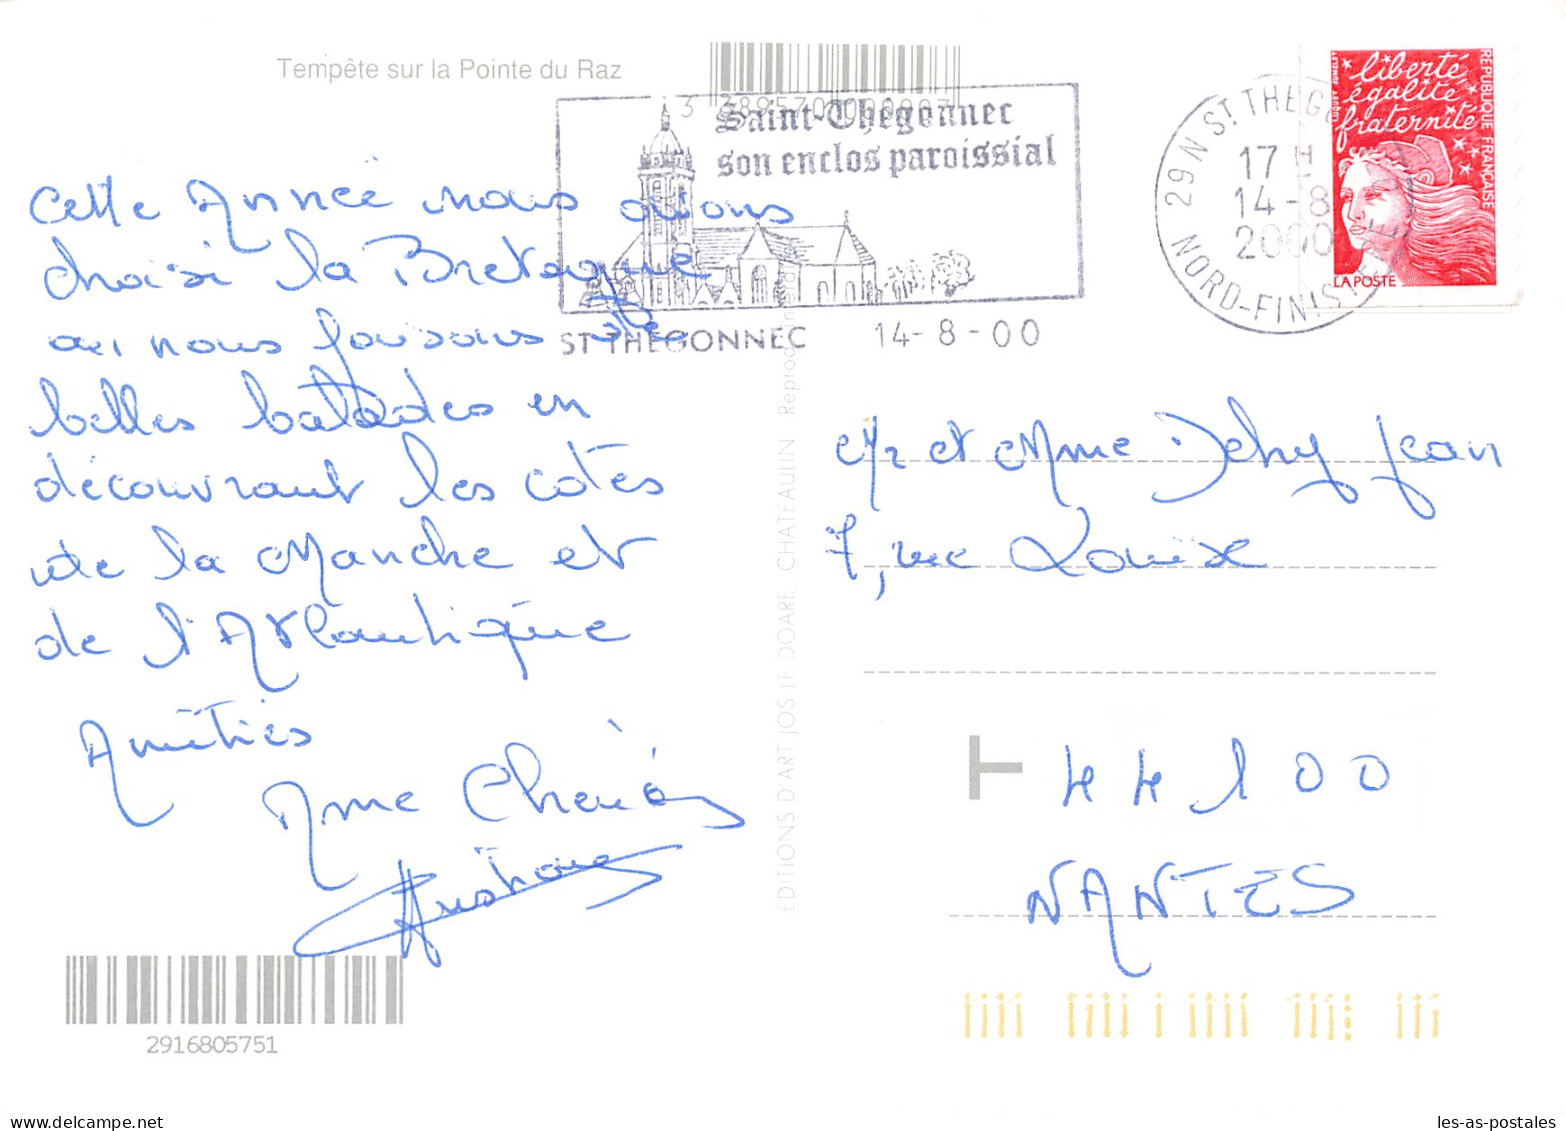 Tempête sur la Pointe du Raz
Saint-Thégonnec
son enclos paroissial
ST THEGONNEC 14-8-00
29 N ST THEGONNEC
17 H
14-8
2000
NORD-FINISTERE
liberté
égalité
fraternité
REPUBLIQUE FRANÇAISE
LA POSTE
Cette Année nous avons
choisi la Bretagne
où nous faisons de
belles balades en
découvrant les cotes
de la Manche et
de l'Atlantique
Amitiés
Mme
EDITIONS D'ART JOS LE DOARE, CHATEAULIN
Mr et Mme Dehy Jean
7, rue Louise
T 44100
NANTES
2916805751
les-as-postales